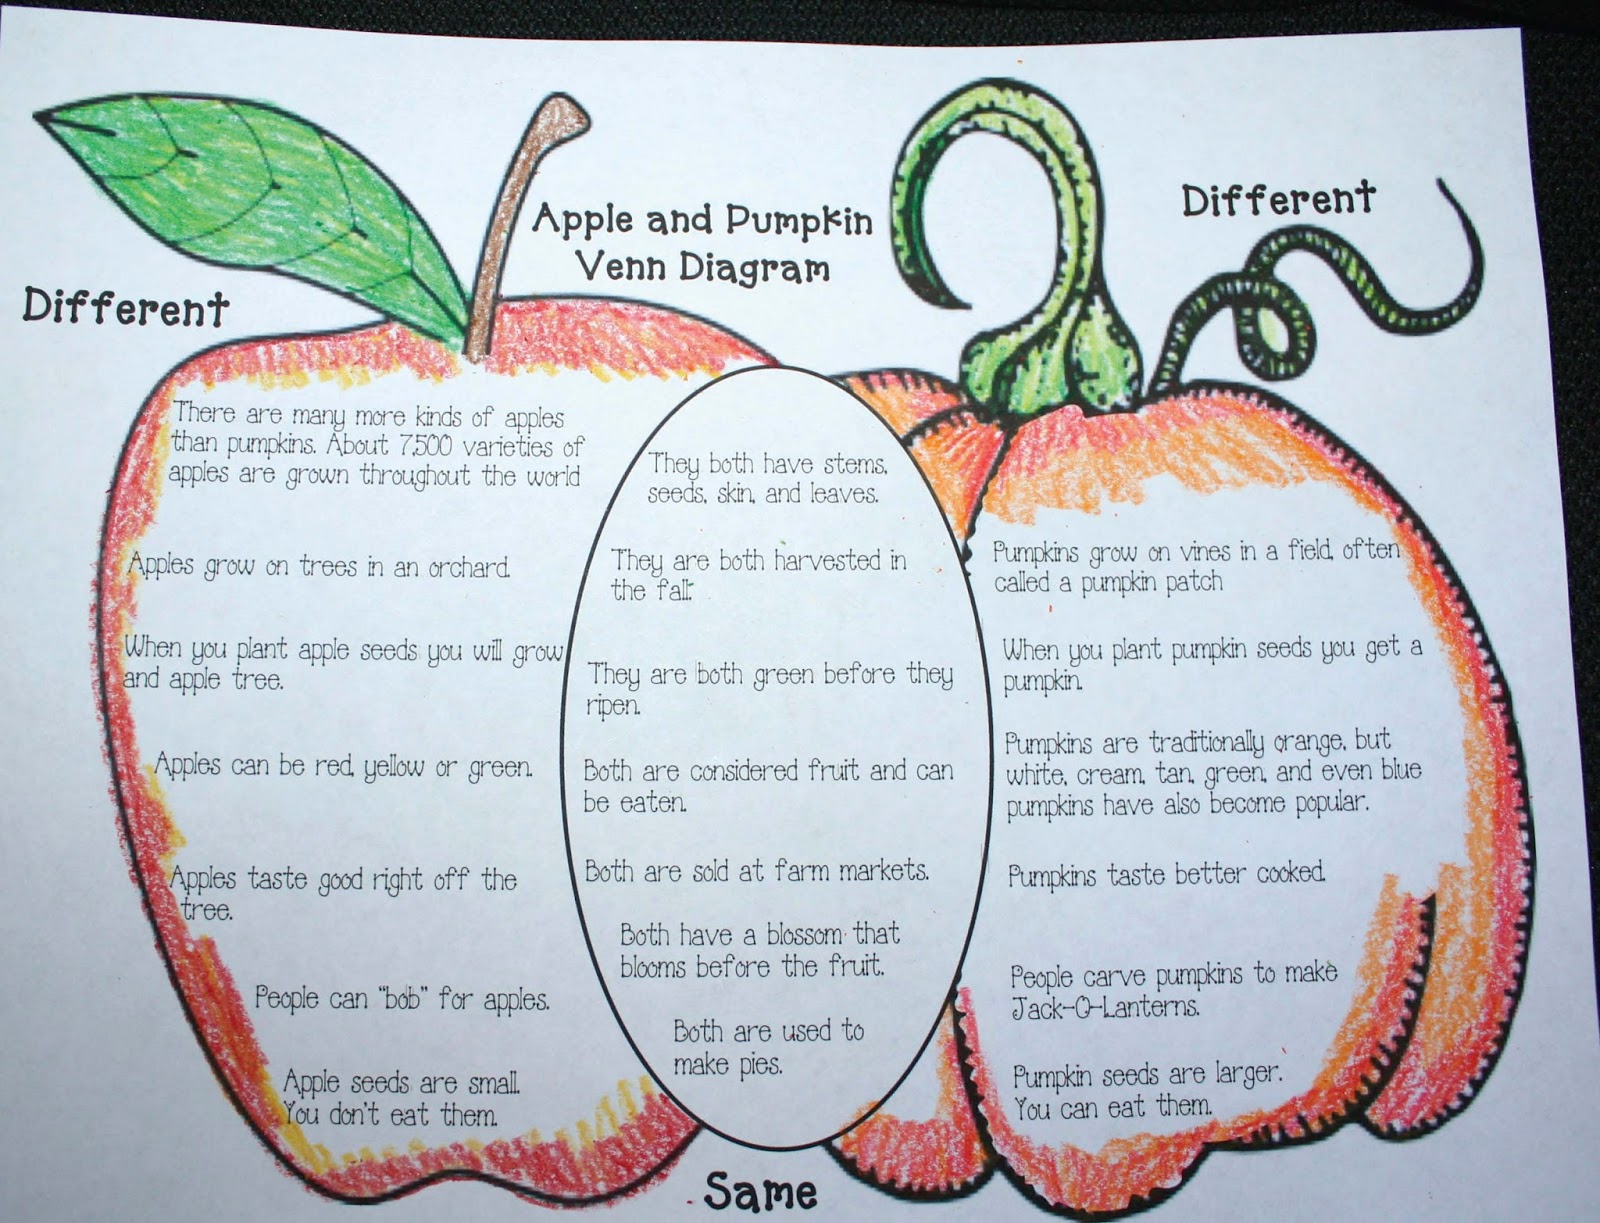 Apple and Pumpkin
Venn Diagram
Different
There are many more kinds of apples
than pumpkins. About 7,500 varieties of
apples are grown throughout the world
Apples grow on trees in an orchard.
When you plant apple seeds you will grow
and apple tree.
Apples can be red, yellow or green.
Apples taste good right off the
tree.
People can "bob" for apples.
Apple seeds are small.
You don't eat them.
They both have stems,
seeds, skin, and leaves.
They are both harvested in
the fall.
They are both green before they
ripen.
Both are considered fruit and can
be eaten.
Both are sold at farm markets.
Both have a blossom that
blooms before the fruit.
Both are used to
make pies.
Same
Different
Pumpkins grow on vines in a field, often
called a pumpkin patch
When you plant pumpkin seeds you get a
pumpkin.
Pumpkins are traditionally orange, but
white, cream, tan, green, and even blue
pumpkins have also become popular.
Pumpkins taste better cooked.
People carve pumpkins to make
Jack-O-Lanterns.
Pumpkin seeds are larger.
You can eat them.